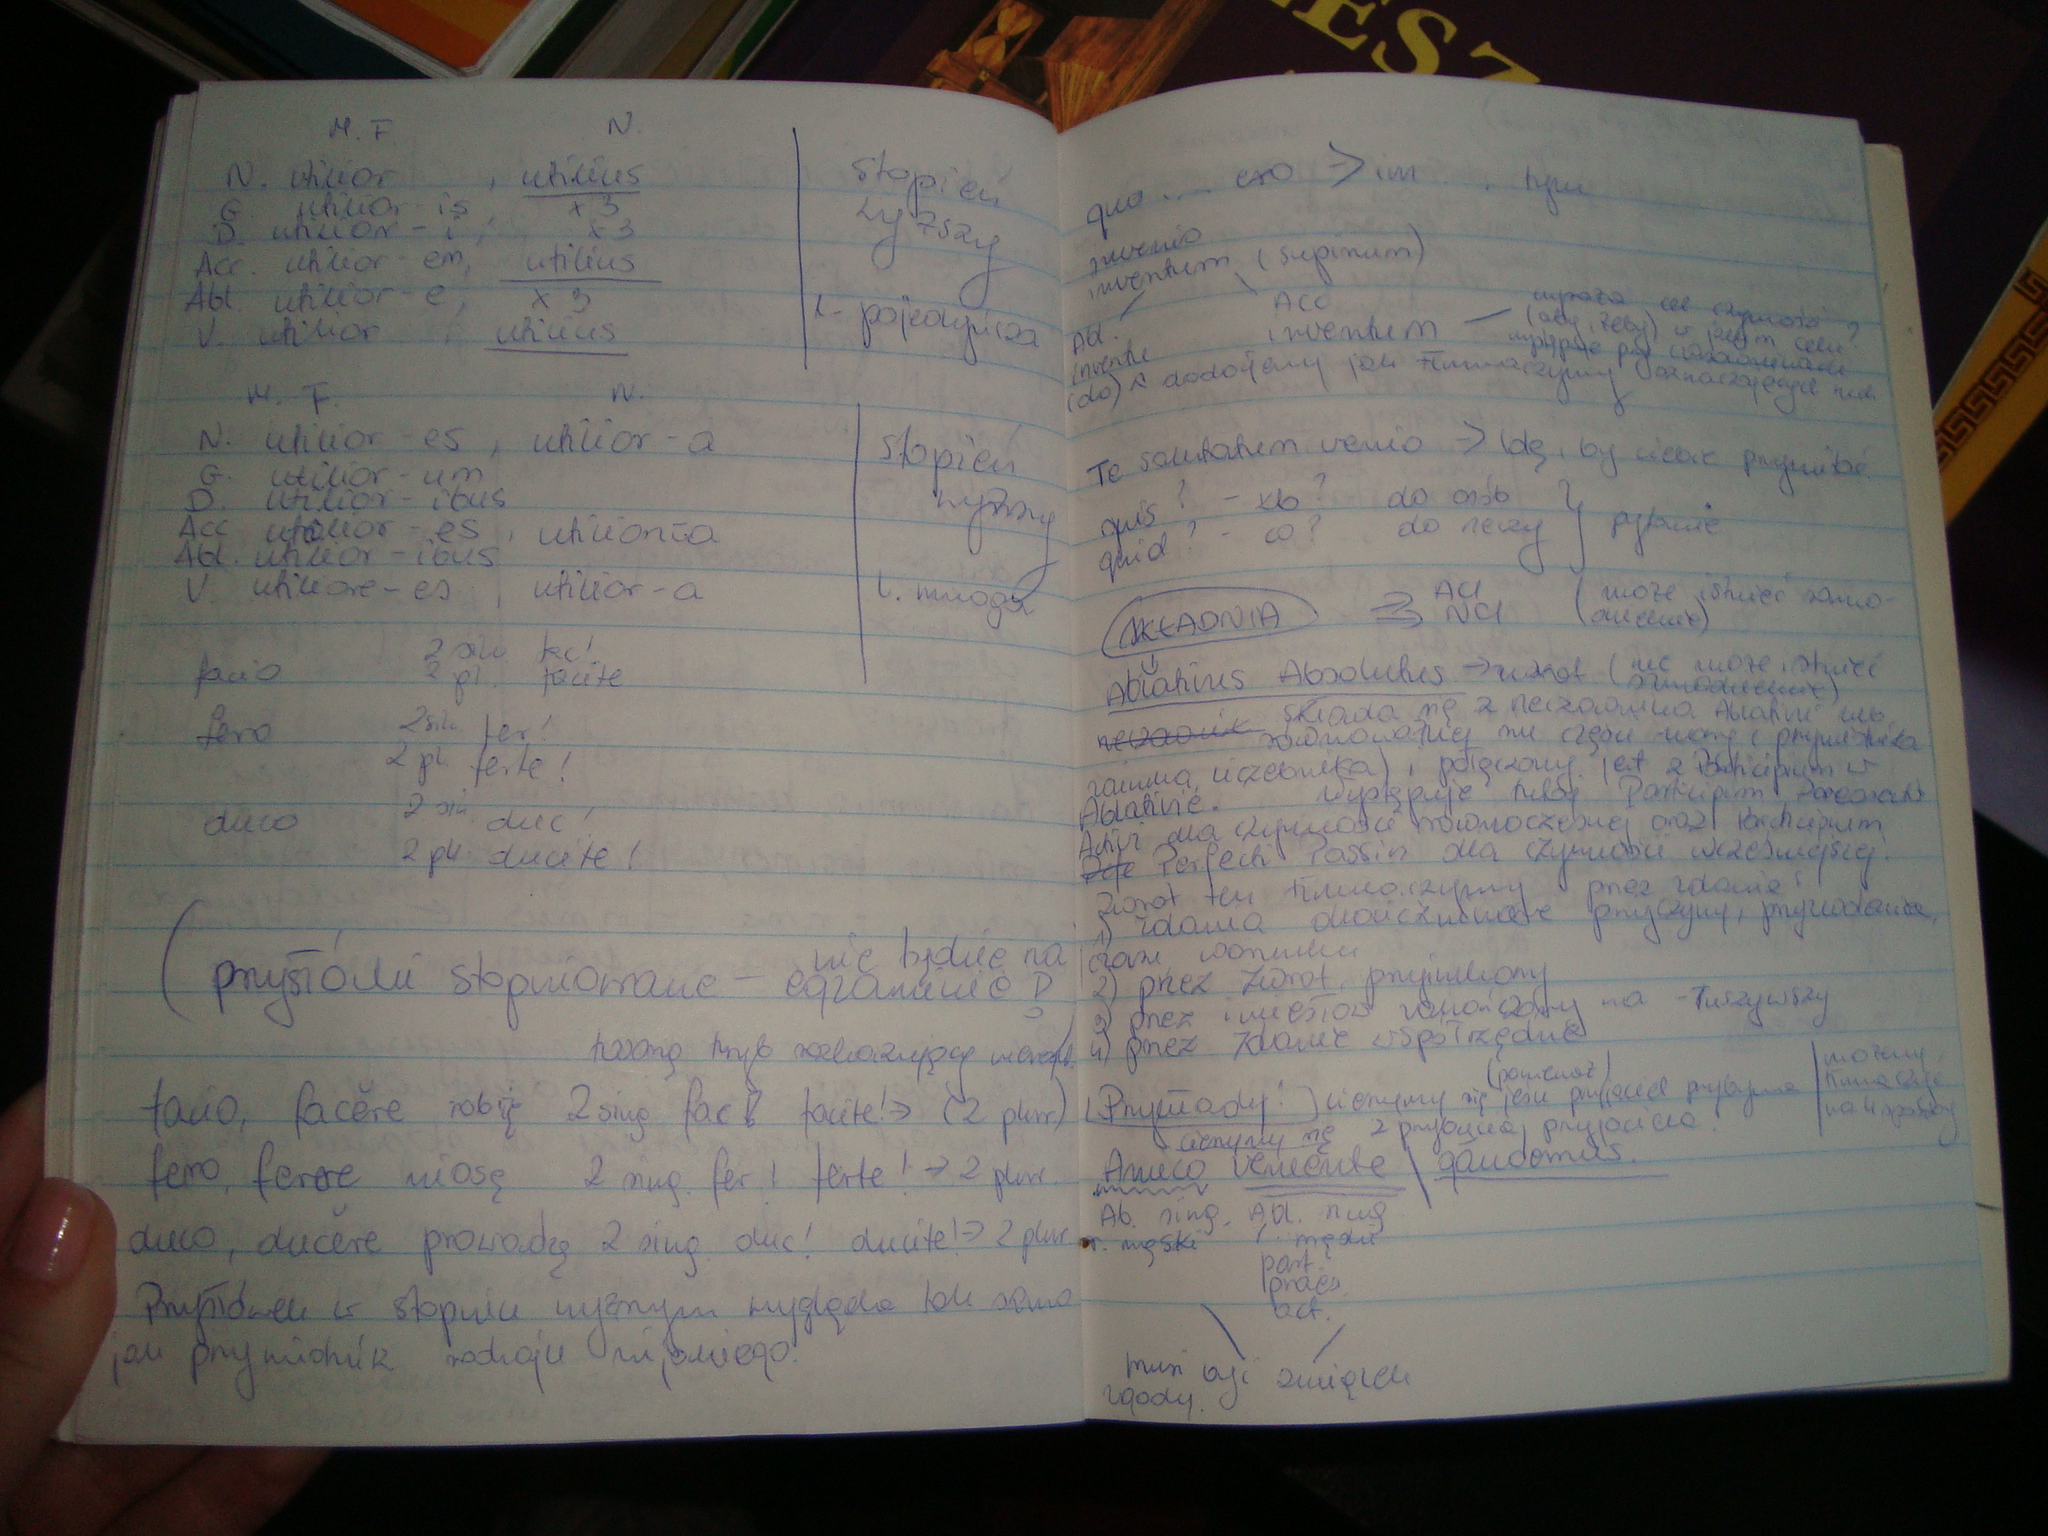 ESZ
M. F. N.
N. utilior , utilius
G. utilior-is , x 3
D. utilior-i , x 3
Acc. utilior-em, utilius
Abl. utilior-e, x 3
V. utilior , utilius
stopień
wyższy
l. pojedyncza
M. F. N.
N. utilior-es , utilior-a
G. utilior-um
D. utilior-ibus
Acc utilior-es , utiliora
Abl. utilior-ibus
V. utiliore-es , utilior-a
stopień
wyższy
l. mnoga
facio 2 sin. fac!
2 pl. facite
fero 2 sin. fer!
2 pl. ferte!
duco 2 sin. duc!
2 pl. ducite!
(przysłówki stopniowane – nie będzie na
egzaminie
tworzą tryb rozkazujący
facio, facĕre robię 2 sing fac! facite! → (2 plur)
fero, ferre niosę 2 sing. fer! ferte! → 2 plur.
duco, ducĕre prowadzę 2 sing. duc! ducite! → 2 plur.
Przysłówek w stopniu wyższym wygląda tak samo
jak przymiotnik rodzaju nijakiego.
quo ... eo → im , tym
invenio
inventum (supinum)
Abl. Acc
inventu inventum – wyraża cel czynności
(aby, żeby) w jakim celu?
występuje przy czasownikach
(do) dodajemy jak tłumaczymy oznaczających ruch
Te salutatum venio → Idę, by ciebie przywitać.
quis? – kto? do osób } pytanie
quid? – co? do rzeczy
SKŁADNIA ACI (może istnieć samo-
NCI dzielnie)
Ablativus Absolutus → zwrot (nie może istnieć
samodzielnie)
składa się z rzeczownika Ablativi lub
równoważnej mu części mowy (przymiotnika
zaimka, liczebnika), połączony jest z Participium w
Ablativie. Występuje tutaj Participium Praesentis
Activi dla czynności równoczesnej oraz Participium
Perfecti Passivi dla czynności wcześniejszej.
Zwrot ten tłumaczymy przez zdanie:
1) zdania okolicznikowe przyczyny, przyzwolenia,
czasu warunku
2) przez zwrot przyimkowy
3) przez imiesłów zakończony na -łszy, wszy
4) przez zdanie współrzędne
(ponieważ)
Przykłady: cieszymy się jeśli przyjaciel przybywa
cieszymy się z przybycia przyjaciela.
możemy
tłumaczyć
na 4 sposoby
Amico veniente \ gaudemus.
Ab. sing. Abl. sing
r. męski r. męski
part.
praes.
act.
musi być związek
zgody.